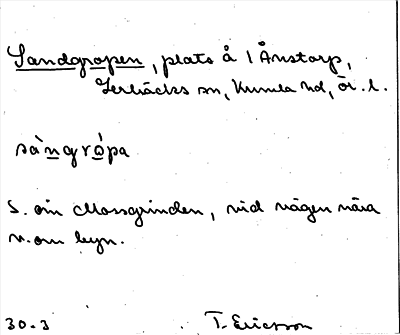 Sandgropen, plats å 1 Ånstorp,
Jerbäcks sn, Kumla hd, Ör. l.
sàngrópa
S. om Mossgrinden, vid vägen nära
v. om byn.
30-3 T. Ericsson